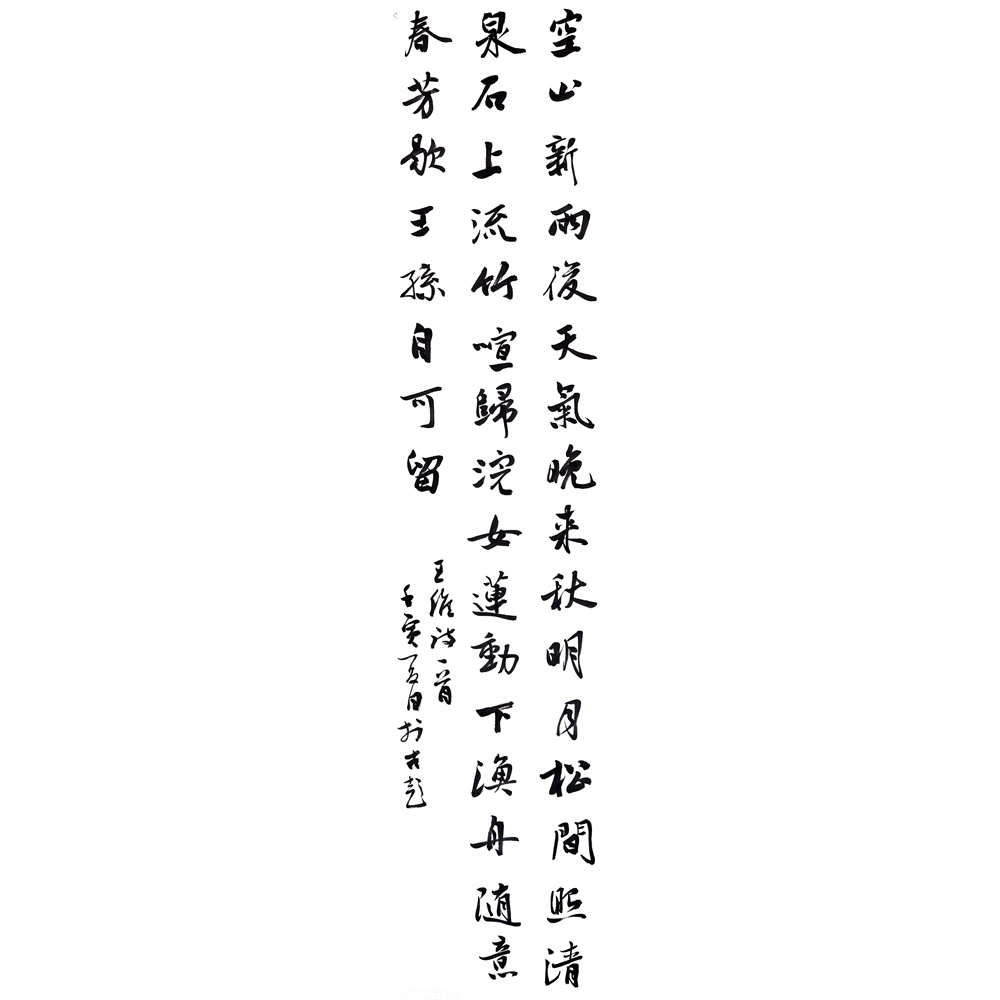 空山新雨後天氣晚来秋明月松間照清
泉石上流竹喧歸浣女蓮動下漁舟随意
春芳歇王孫自可留
王維詩一首
壬寅夏日於古彭